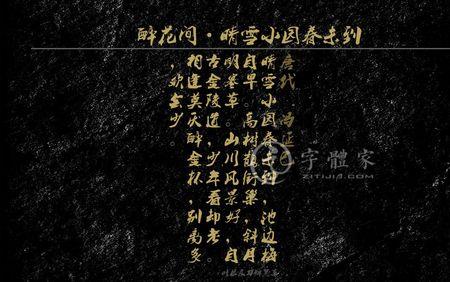 醉花间·晴雪小园春未到
唐代 冯延
晴雪小园春未到，池边梅
自早。高树鹊衔巢，斜月
明寒草。山川风景好，自
古金陵道。少年看却老。
相逢莫厌醉金杯，别离多
，欢会少。
字體家
ZITIJIA.COM
叶根友刀锋黑草